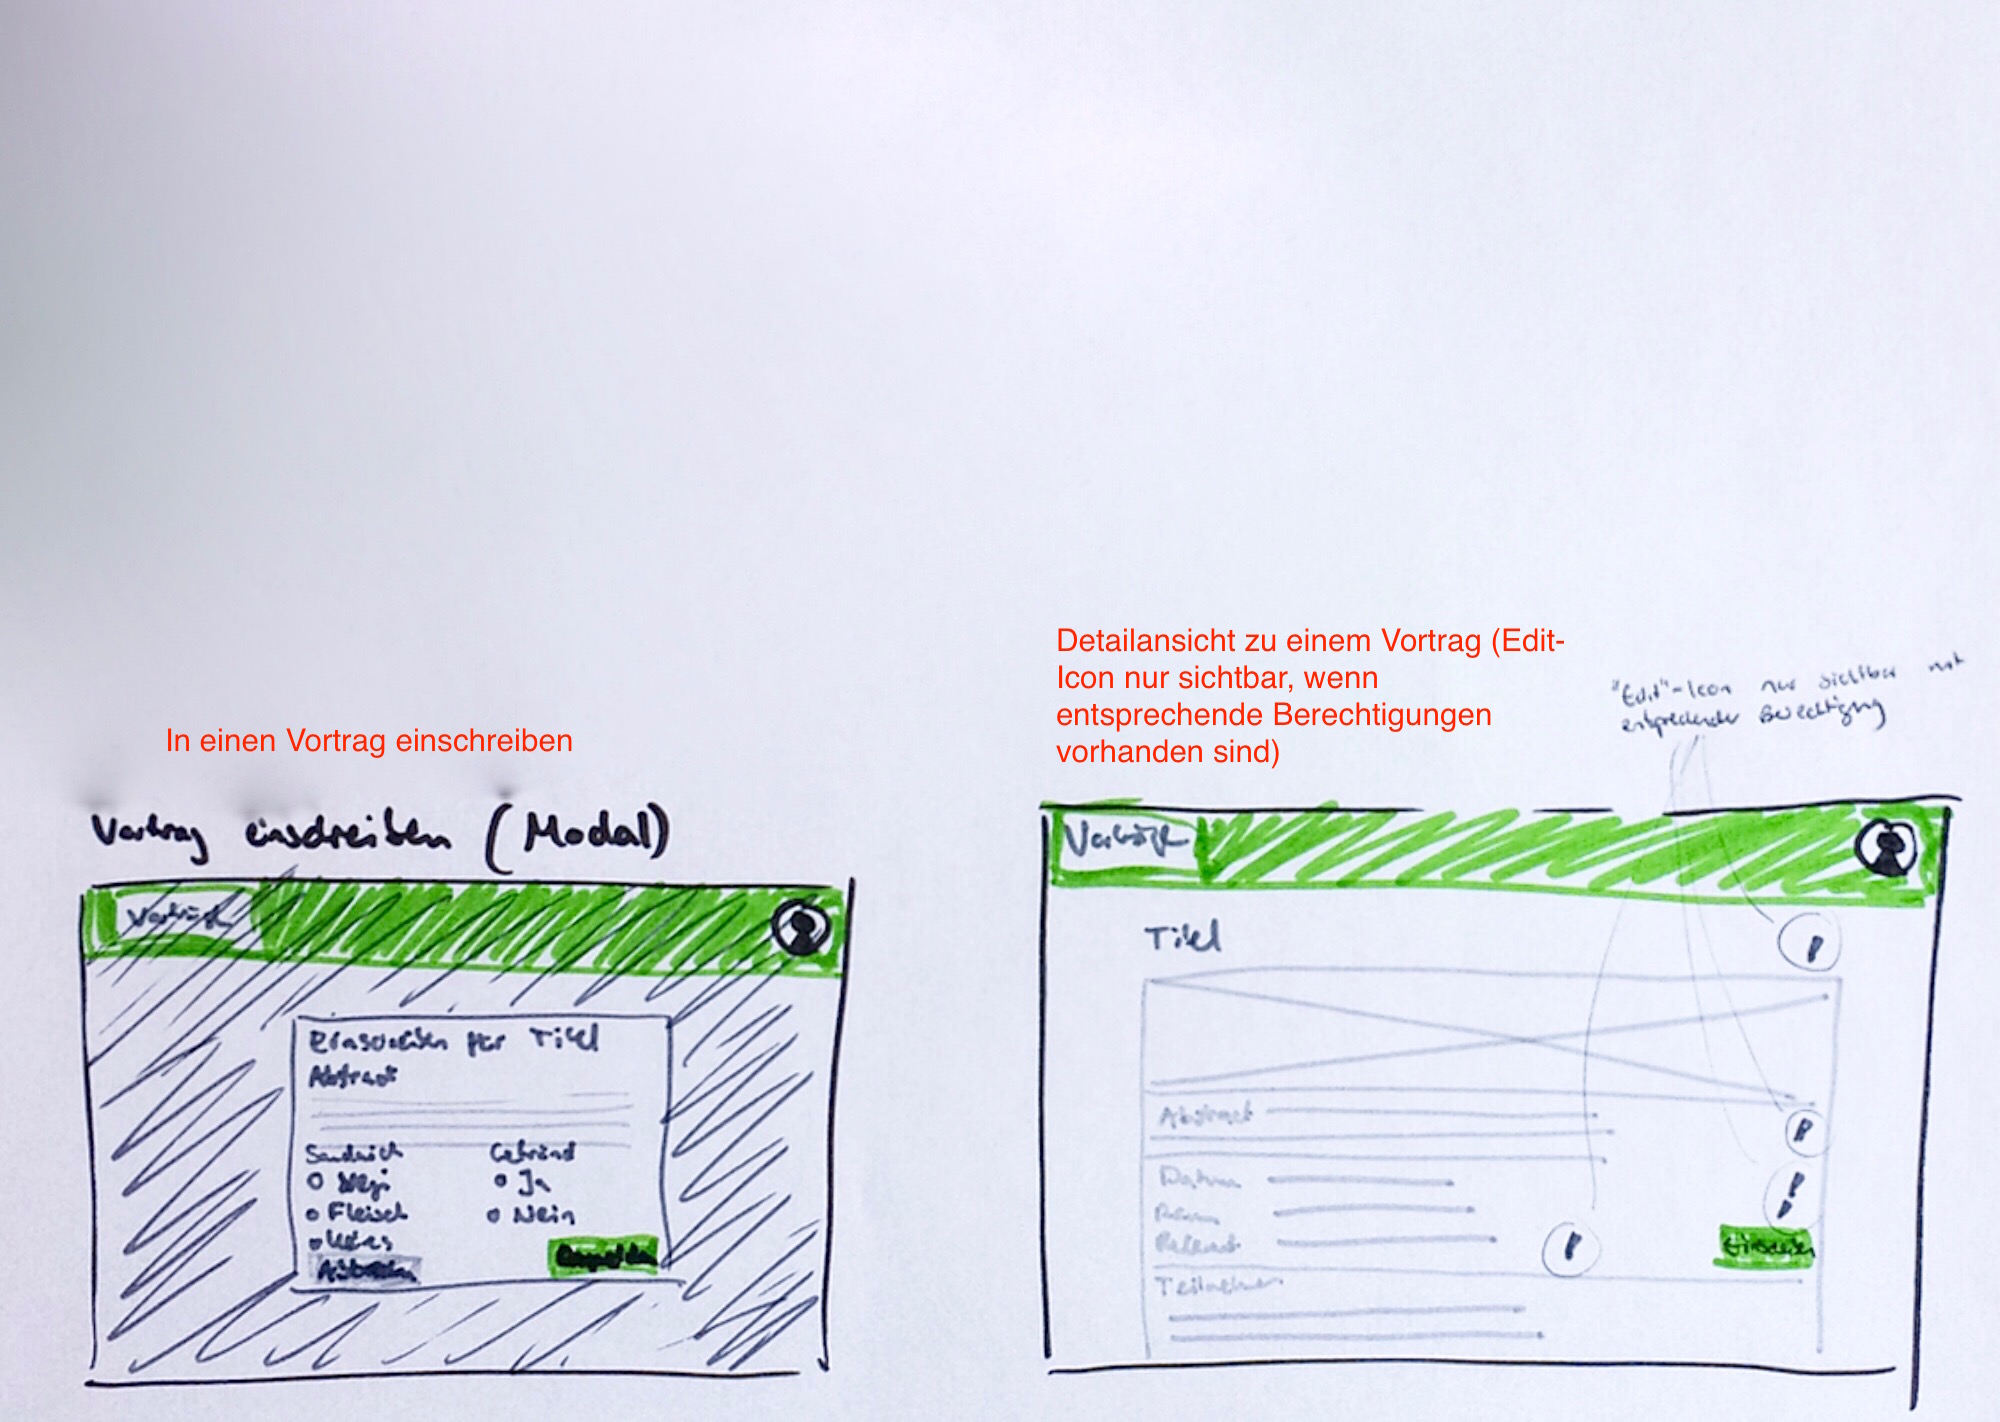 In einen Vortrag einschreiben
Vortrag einschreiben (Modal)
Vorträge
Einschreiben für Titel
Abstract
Sandwich
Getränk
Vegi
Ja
Fleisch
Nein
Abbrechen
Detailansicht zu einem Vortrag (Edit-
Icon nur sichtbar, wenn
entsprechende Berechtigungen
vorhanden sind)
"Edit"-Icon nur sichtbar mit
entsprechender Berechtigung
Vorträge
Titel
Abstract
Datum
Raum
Referent
Einschreiben
Teilnehmer